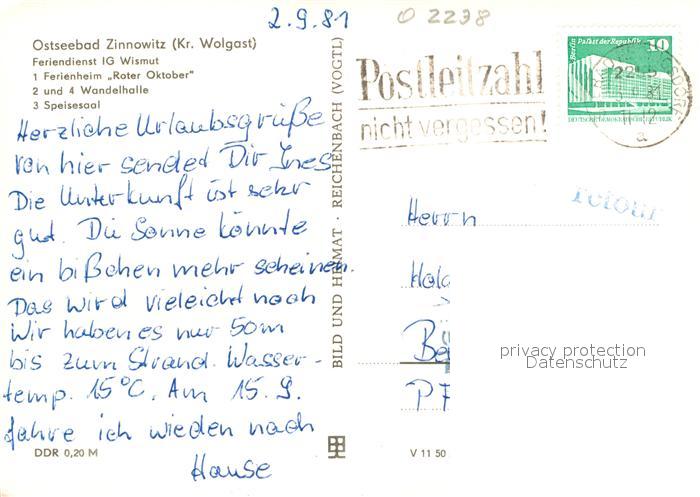 2.9.81
O 2238
Ostseebad Zinnowitz (Kr. Wolgast)
Feriendienst IG Wismut
1 Ferienheim „Roter Oktober"
2 und 4 Wandelhalle
3 Speisesaal
Herzliche Urlaubsgrüße
von hier sendet Dir Ines
Die Unterkunft ist sehr
gut. Die Sonne könnte
ein bißchen mehr scheinen.
Das wird vieleicht noch
Wir haben es nur 50m
bis zum Strand. Wasser-
temp. 15°C. Am 15. 9.
fahre ich wieden nach
Hause
DDR 0,20 M
BILD UND HEIMAT · REICHENBACH (VOGTL)
V 11 50
Postleitzahl
nicht vergessen!
Berlin Palast der Republik 10
retour
Herrn
Be
PF
privacy protection
Datenschutz